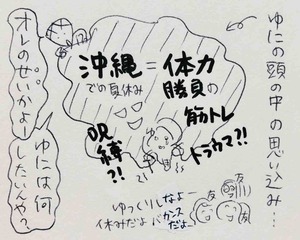 ゆにの頭の中の思い込み…
沖縄
での夏休み
=
体力
勝負の
筋トレ
トラウマ?!
呪
縛
?!
ゆには何
したいんや?
オレのせいかよー
友
友
友
ゆっくりしなよー
休みだよ バカンスだよー